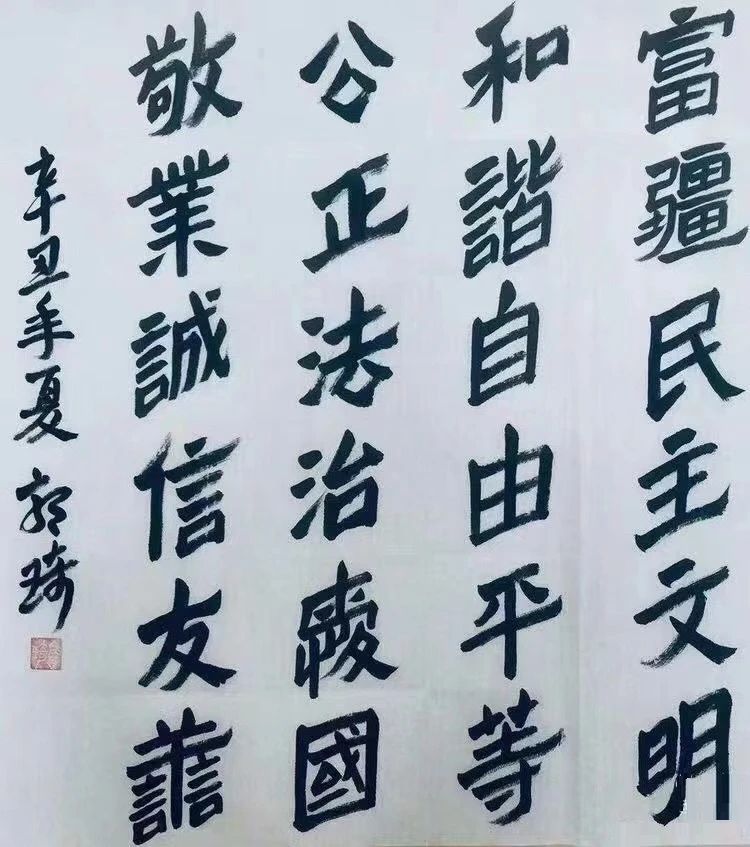 富疆民主文明
和諧自由平等
公正法治國
敬業誠信友
辛丑年夏 琦